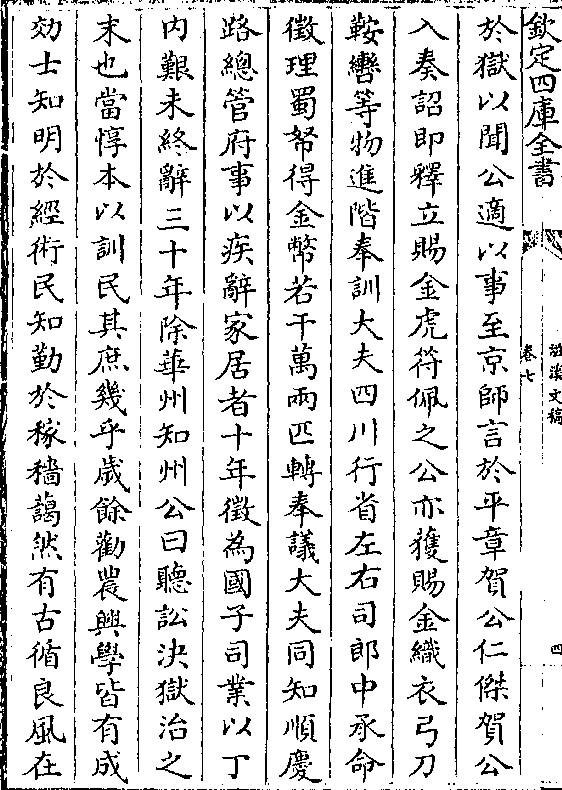 欽定四庫全書
卷七
文稿
四
於獄以聞公適以事至京師言於平章賀公仁傑賀公
入奏詔即釋立賜金虎符佩之公亦獲賜金織衣弓刀
鞍轡等物進階奉訓大夫四川行省左右司郎中承命
徵理蜀帑得金幣若干萬兩匹轉奉議大夫同知順慶
路總管府事以疾辭家居者十年徵為國子司業以丁
内艱未終辭三十年除華州知州公曰聽訟決獄治之
末也當惇本以訓民其庶幾乎歲餘勸農興學皆有成
効士知明於經術民知勤於稼穡藹然有古循良風在